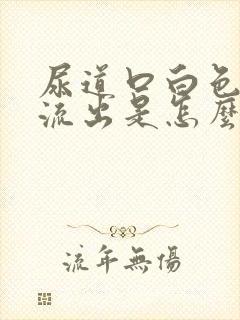 尿道口白色
流出是怎麼
流年無傷